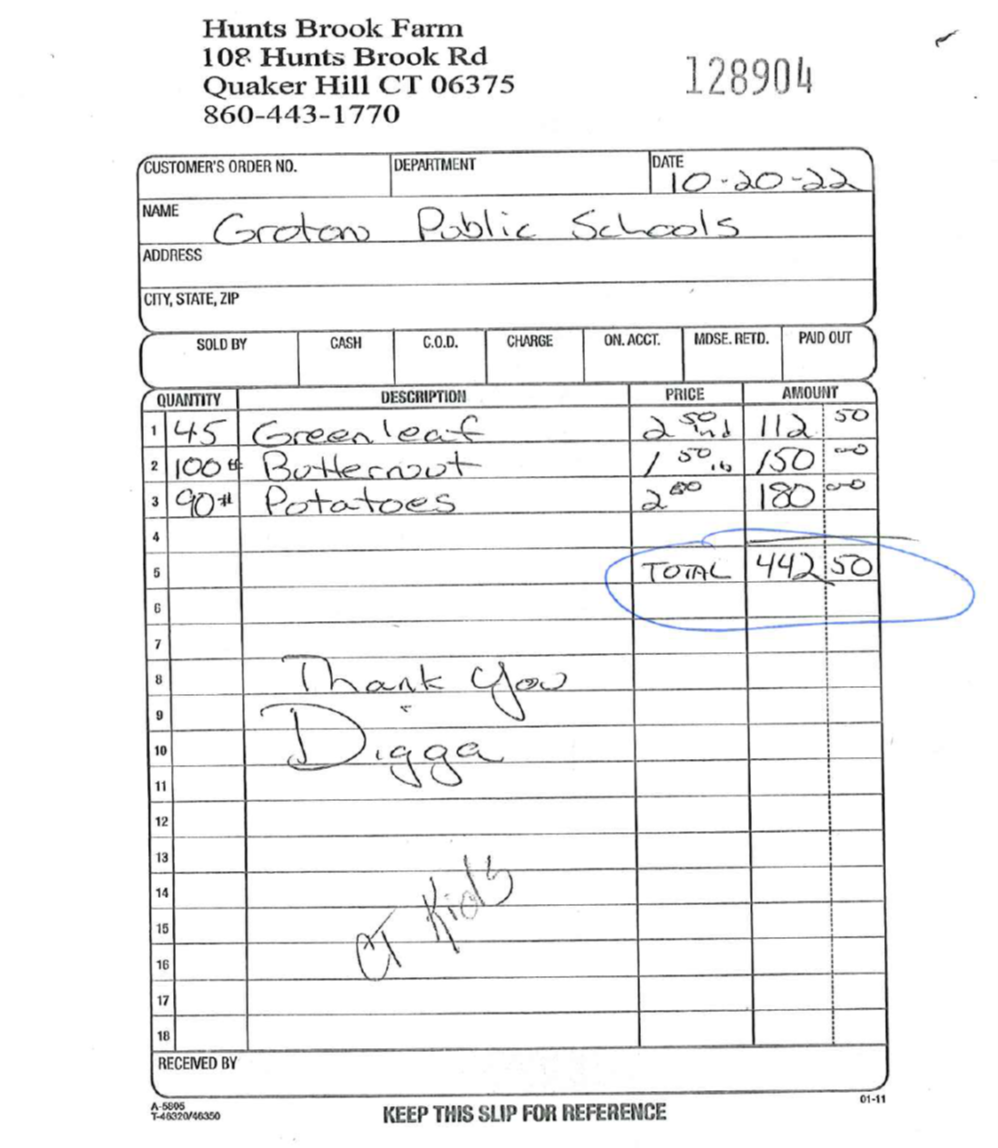 Hunts Brook Farm
108 Hunts Brook Rd
Quaker Hill CT 06375
860-443-1770
128904
CUSTOMER'S ORDER NO. DEPARTMENT DATE 10-20-22
NAME Groton Public Schools
ADDRESS
CITY, STATE, ZIP
SOLD BY CASH C.O.D. CHARGE ON. ACCT. MDSE. RETD. PAID OUT
QUANTITY DESCRIPTION PRICE AMOUNT
1 45 Greenleaf 2 50 ind 112 50
2 100# Butternut 1 50 lb 150 00
3 90# Potatoes 2 00 180 00
4
5 TOTAL 442 50
6
7
8 Thank You
9
10 Digga
11
12
13
14 CT Kids
15
16
17
18
RECEIVED BY
A-5805
T-46320/46350
KEEP THIS SLIP FOR REFERENCE
01-11